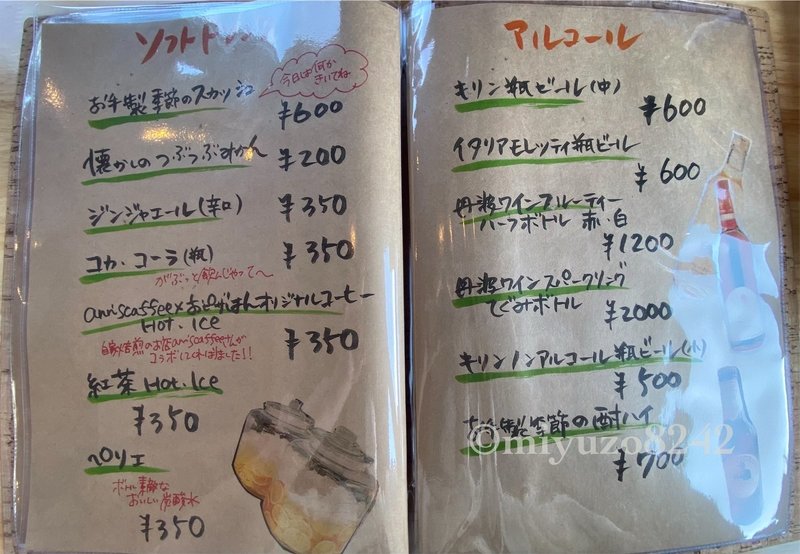 ソフトド
お手製季節のスカッシュ
今日は何か
きいてね
¥600
懐かしのつぶつぶみかん
¥200
ジンジャエール(辛口)
¥350
コカ・コーラ(瓶)
¥350
がぶっと飲んじゃって〜
ann's caffee×おどがまんオリジナルコーヒー
Hot・Ice
¥350
自家焙煎のお店ann's caffeeさんが
コラボしてくれはりました!!
紅茶 Hot・Ice
¥350
ペリエ
ボトル素敵な
おいしい炭酸水
¥350
アルコール
キリン瓶ビール(中)
¥600
イタリアモレッティ瓶ビール
¥600
丹波ワインフルーティー
ハーフボトル 赤・白
¥1200
丹波ワインスパークリング
てごみボトル
¥2000
キリンノンアルコール瓶ビール(小)
¥500
お手製季節の酎ハイ
¥700
©miyuzo8242